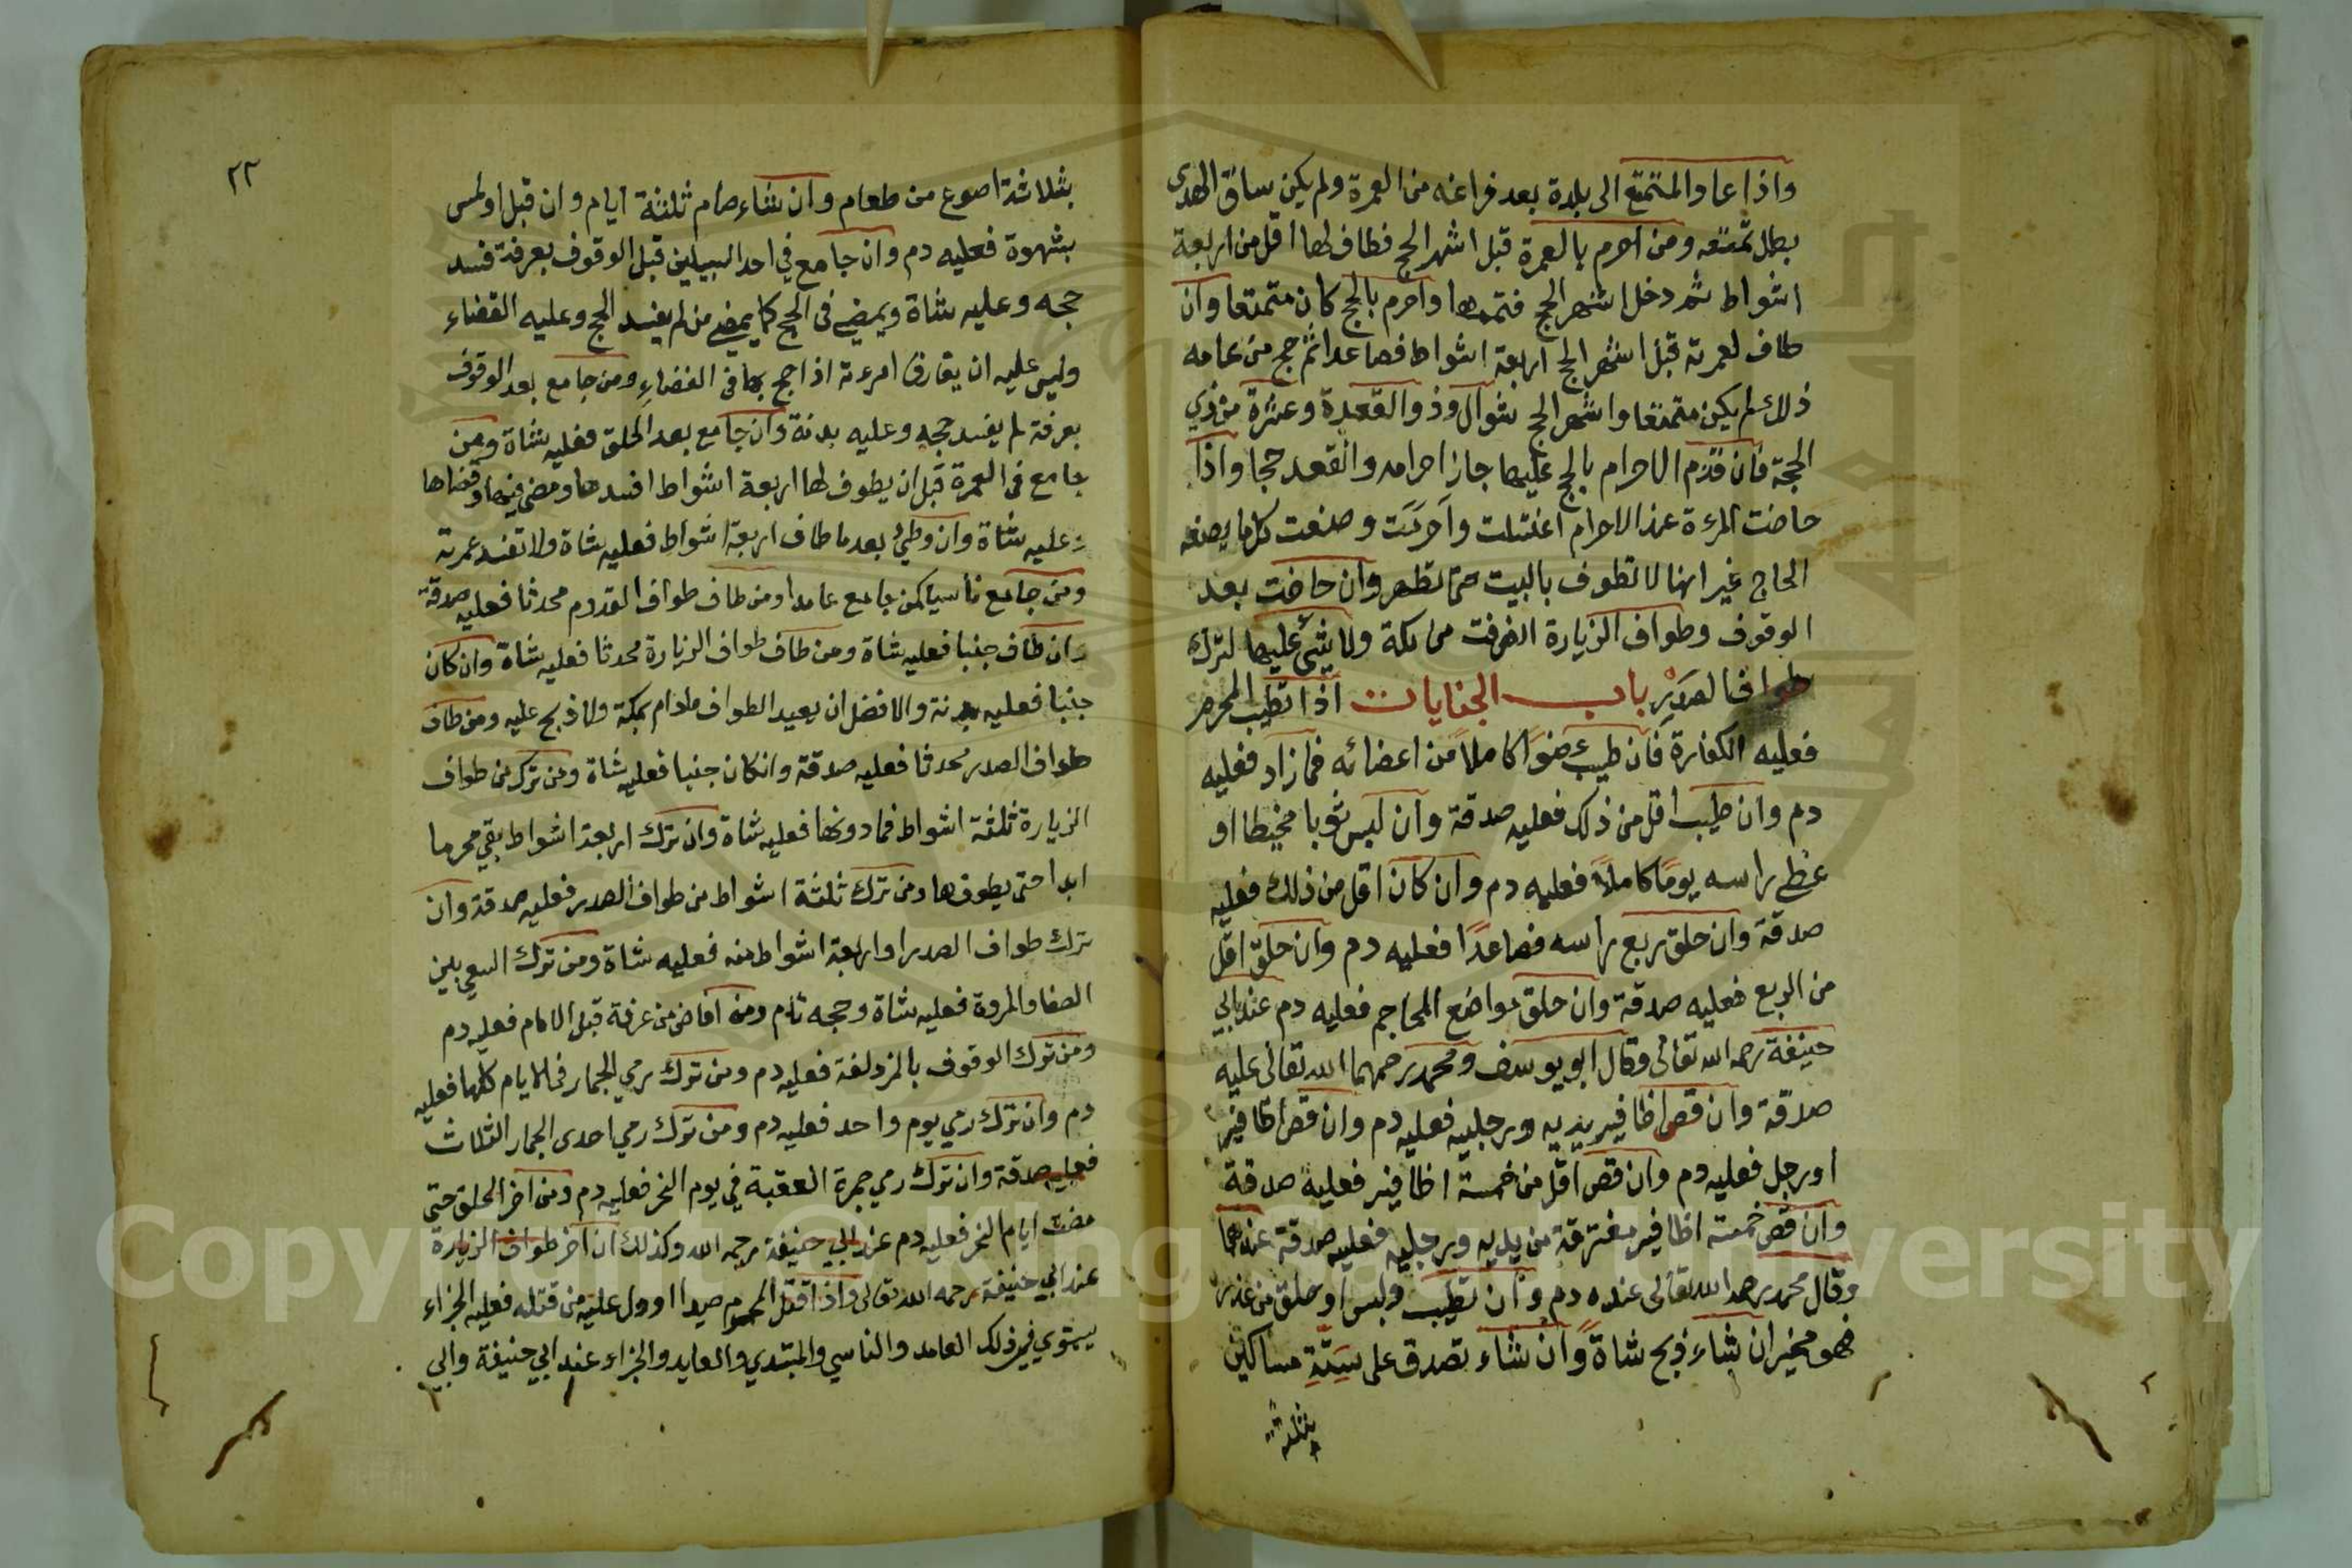 واذا عاد المتمتع الى بلدة بعد فراغه من العمرة ولم يكن ساق الهدى
بطل تمتعه ومن احرم بالعمرة قبل اشهر الحج فطاف لها اقل من اربعة
اشواط ثم دخل اشهر الحج فتممها واحرم بالحج كان متمتعا وان
طاف لعمرته قبل اشهر الحج اربعة اشواط فصاعدا ثم حج من عامه
ذلك لم يكن متمتعا واشهر الحج شوال وذو القعدة وعشرة من ذي
الحجة فان قدم الاحرام بالحج عليها جاز احرامه وانقعد حجا واذا
حاضت المرءة عند الاحرام اغتسلت واحرمت وصنعت كما يصنعه
الحاج غير انها لا تطوف بالبيت حتى تطهر وان حاضت بعد
الوقوف وطواف الزيارة انصرفت من مكة ولا شئ عليها لترك
طواف الصدر باب الجنايات اذا تطيب المحرم
فعليه الكفارة فان طيب عضوا كاملا من اعضائه فمازاد فعليه
دم وان طيب اقل من ذلك فعليه صدقة وان لبس ثوبا مخيطا او
غطى راسه يوما كاملا فعليه دم وان كان اقل من ذلك فعليه
صدقة وان حلق ربع راسه فصاعدا فعليه دم وان حلق اقل
من الربع فعليه صدقة وان حلق مواضع المحاجم فعليه دم عند ابي
حنيفة رحمه الله تعالى وقال ابو يوسف ومحمد رحمهما الله تعالى عليه
صدقة وان قص اظافير يديه ورجليه فعليه دم وان قص اظافير
او رجل فعليه دم وان قص اقل من خمسة اظافير فعليه صدقة
وان قص خمسة اظافير مفترقة من يديه ورجليه فعليه صدقة عندهما
وقال محمد رحمه الله تعالى عنده دم وان تطيب ولبس او حلق من عذر
فهو مخير ان شاء ذبح شاة وان شاء تصدق على ستة مساكين
بثلاثة
٢٢
بثلاثة اصوع من طعام وان شاء صام ثلثة ايام وان قبل او لمس
بشهوة فعليه دم وان جامع في احد السبيلين قبل الوقوف بعرفة فسد
حجه وعليه شاة ويمضي في الحج كما يمضي من لم يفسد الحج وعليه القضاء
وليس عليه ان يفارق امرءته اذا حج بها في القضاء ومن جامع بعد الوقوف
بعرفة لم يفسد حجه وعليه بدنة وان جامع بعد الحلق فعليه شاة ومن
جامع في العمرة قبل ان يطوف لها اربعة اشواط افسدها ومضى فيها وقضاها
وعليه شاة وان وطئ بعد ما طاف اربعة اشواط فعليه شاة ولا تفسد عمرته
ومن جامع ناسيا كمن جامع عامدا ومن طاف طواف القدوم محدثا فعليه صدقة
وان طاف جنبا فعليه شاة ومن طاف طواف الزيارة محدثا فعليه شاة وان كان
جنبا فعليه بدنة والافضل ان يعيد الطواف مادام بمكة ولا ذبح عليه ومن طاف
طواف الصدر محدثا فعليه صدقة وانكان جنبا فعليه شاة ومن ترك من طواف
الزيارة ثلثة اشواط فما دونها فعليه شاة وان ترك اربعة اشواط بقي محرما
ابدا حتى يطوفها ومن ترك ثلثة اشواط من طواف الصدر فعليه صدقة وان
ترك طواف الصدر او اربعة اشواط منه فعليه شاة ومن ترك السعي بين
الصفا والمروة فعليه شاة وحجه تام ومن افاض من عرفة قبل الامام فعليه دم
ومن ترك الوقوف بالمزدلفة فعليه دم ومن ترك رمي الجمار في الايام كلها فعليه
دم وان ترك رمي يوم واحد فعليه دم ومن ترك رمي احدى الجمار الثلاث
فعليه صدقة وان ترك رمي جمرة العقبة في يوم النحر فعليه دم ومن اخر الحلق حتى
مضت ايام النحر فعليه دم عند ابي حنيفة رحمه الله وكذلك ان اخر طواف الزيارة
عند ابي حنيفة رحمه الله تعالى واذا قتل المحرم صيدا او دل عليه من قتله فعليه الجزاء
يستوي في ذلك العامد والناسي والمبتدي والعايد والجزاء عند ابي حنيفة وابي
Copyright © King Saud University